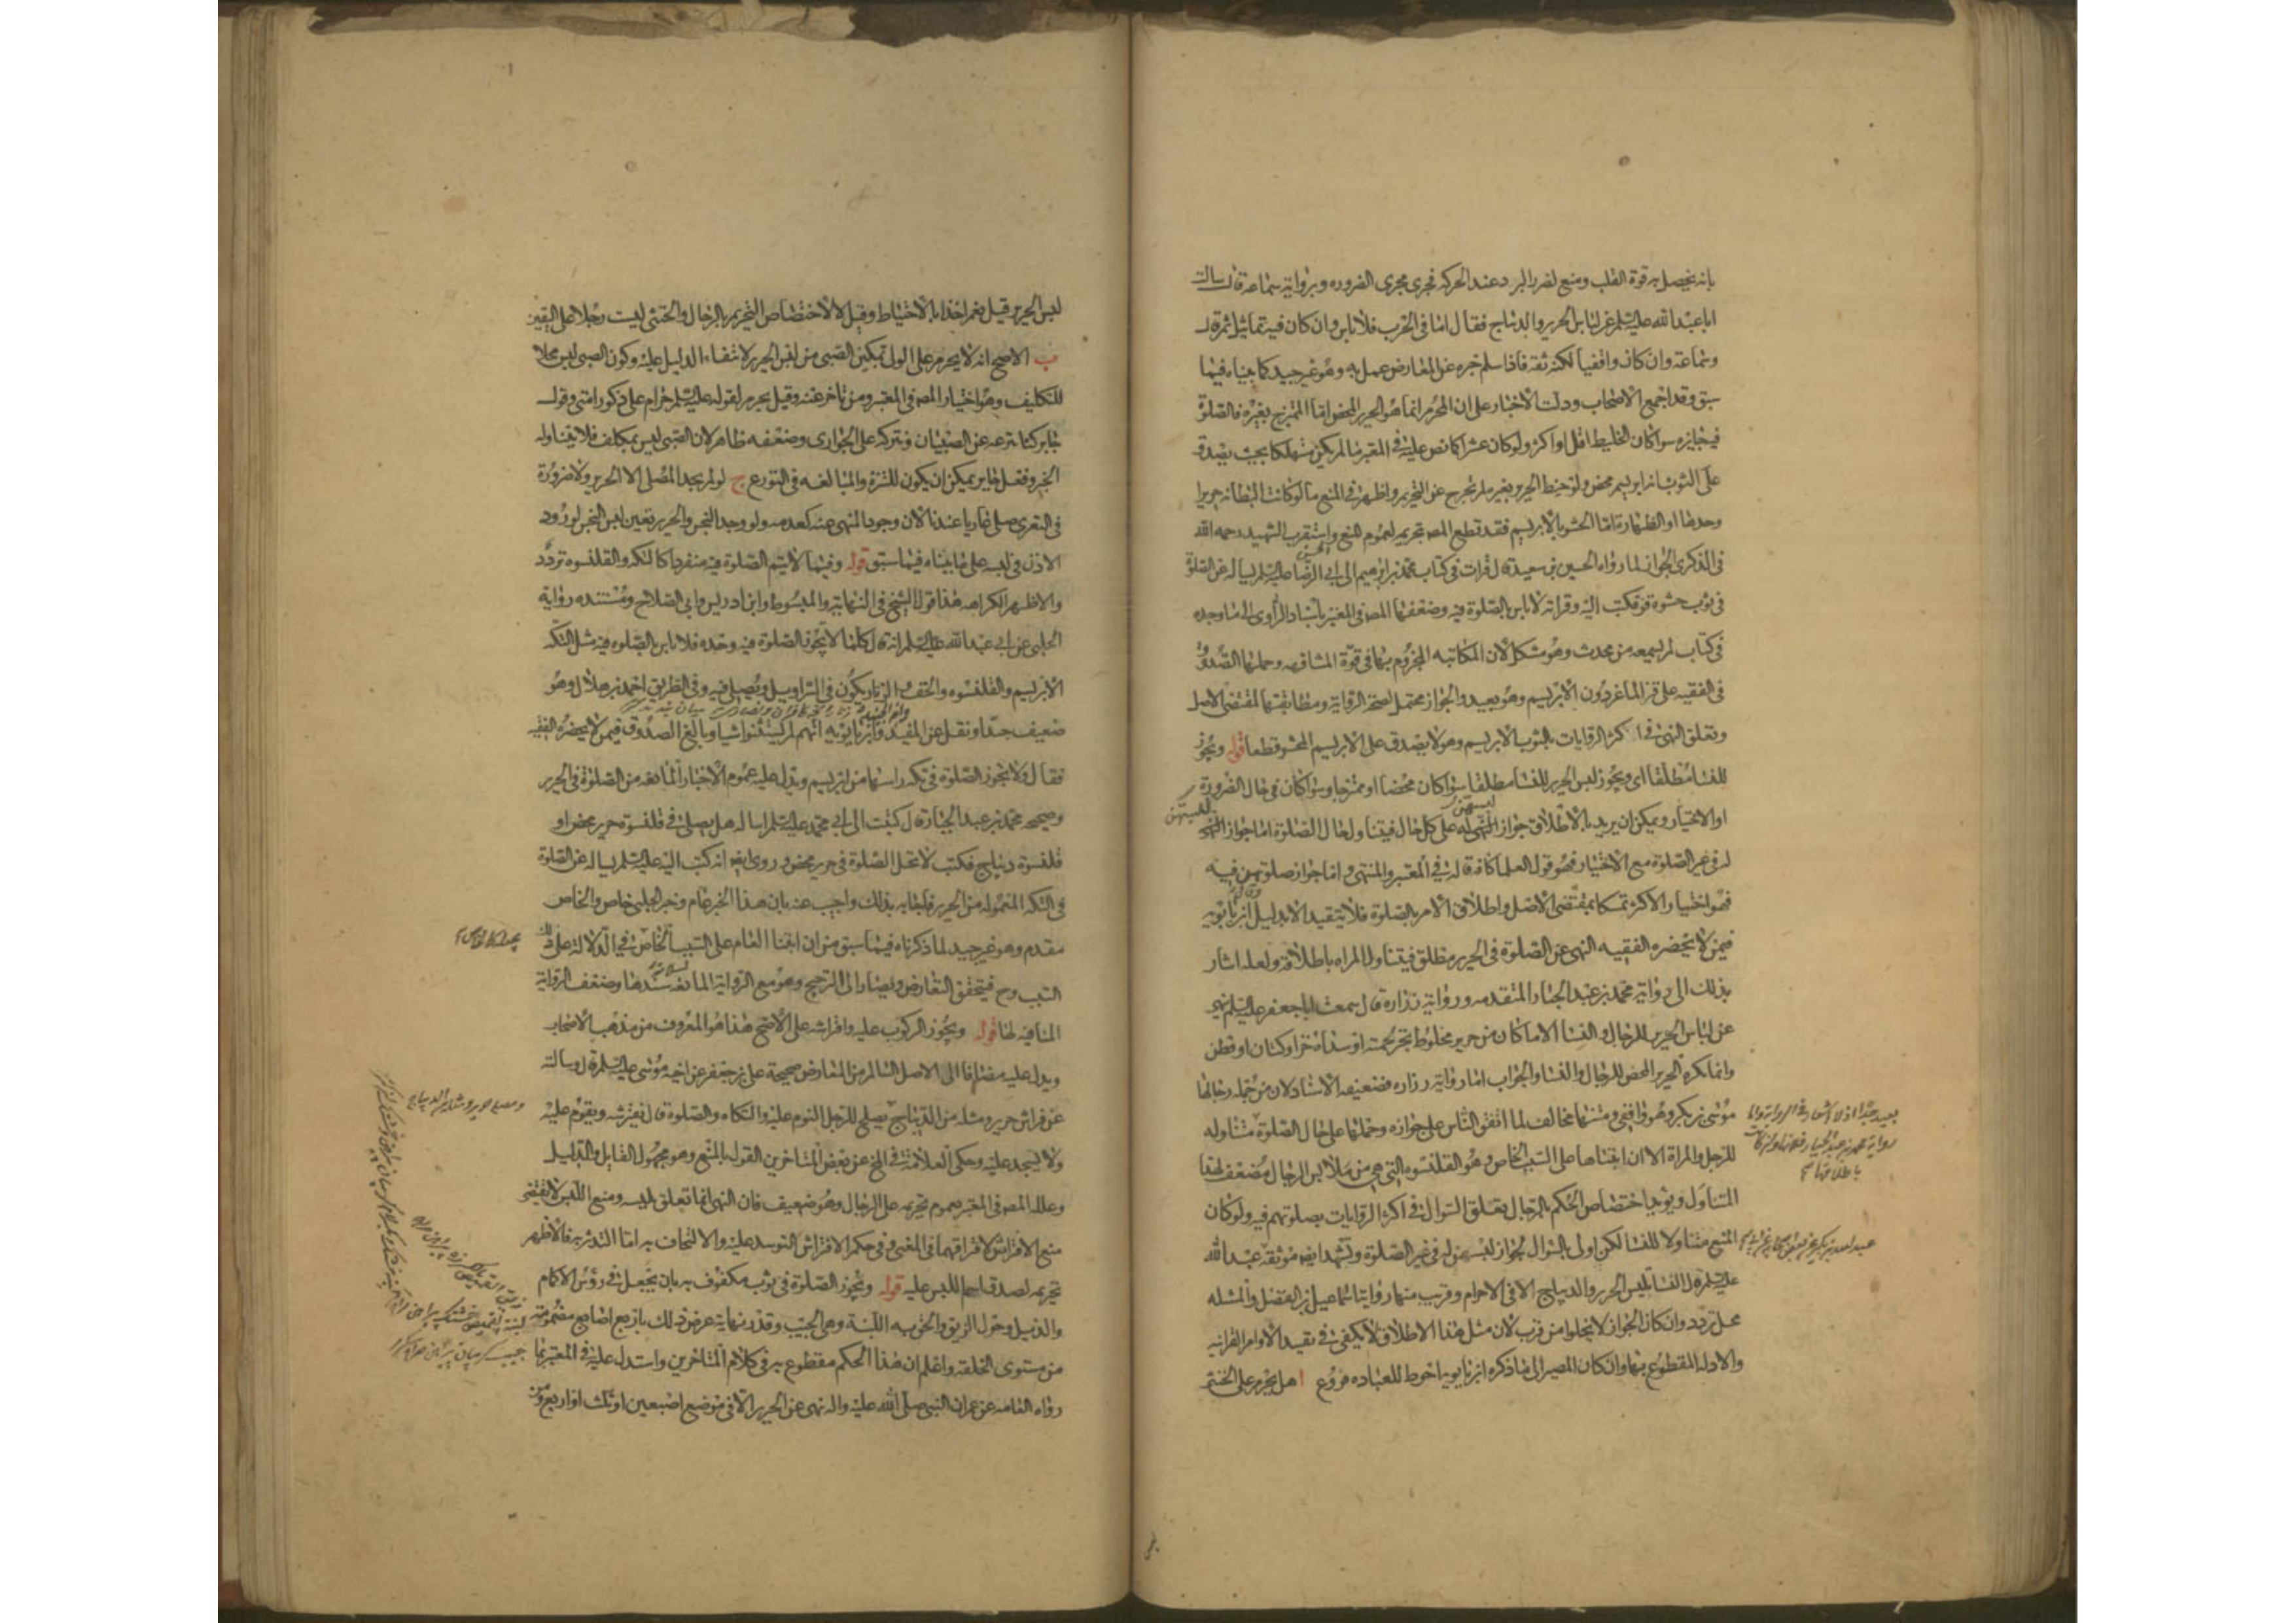 بانه يحصل به قوة القلب ومنع لضرر البرد عند الحركه فجرى مجرى الضروره وبرواية سماعة قال سالت
ابا عبد الله عليه السلم عن لباس الحرير والديباج فقال اما فى الحرب فلا باس وان كان فيه تماثيل
وسماعة وان كان واقفيا لكنه ثقة فاذا سلم خبره عن المعارض عمل به وهو غير جيد كما بيناه فيما
سبق وقد اجمع الاصحاب ودلت الاخبار على ان المحرم انما هو الحرير المحض اما الممتزج بغيره فالصلوة
فيه جايزه سوا كان الخليط اقل او اكثر ولو كان عشرا كما نص عليه فى المعتبر ما لم يكن مستهلكا بحيث يصدق
على الثوب انه ابريسم محض ولو خيط الحرير بغيره لم يخرج عن التحريم واظهر فى المنع ما لو كانت البطانه حريرا
وحدها او الظهارة اما الحشو بالابريسم فقد قطع المصـ بتحريمه لعموم المنع واستقرب الشهيد رحمه الله
فى الذكرى الجواز لما رواه الحسين بن سعيد قال قرات فى كتاب محمد بن ابرهيم الى ابى الرضا عليه السلم يساله عن الصلوة
فى ثوب حشوه قز فكتب اليه وقراته لا باس بالصلوة فيه وضعفها المصـ فى المعتبر باسناد الراوى الى ما وجده
فى كتاب لم يسمعه من محدث وهو مشكل لان المكاتبه المجزوم بها فى قوة المشافهه وحملها الصدوق
فى الفقيه على قز الماعز دون الابريسم وهو بعيد والجواز محتمل لصحة الرواية ومطابقتها لمقتضى الاصل
وتعلق النهى فى اكثر الروايات بالثوب الابريسم وهو لا يصدق على الابريسم المحشو قطعا قوله ويجوز
للنسا مطلقا اى ويجوز لبس الحرير للنسا مطلقا سوا كان محضا او ممتزجا وسوا كان فى حال الضرورة
او الاختيار ويمكن ان يريد بالاطلاق جواز لبسهن له على كل حال فيتناول حال الصلوة اما جواز لبسهن
له فى غير الصلوة مع الاختيار فهو قول العلما كافة قاله فى المعتبر والمنتهى واما جواز صلوتهن فيه
فهو اختيار الاكثر تمسكا بمقتضى الاصل واطلاق الامر بالصلوة فلا يتقيد الا بدليل وقال ابن بابويه
فيمن لا يحضره الفقيه النهى عن الصلوة فى الحرير مطلق فيتناول المراه باطلاقه ولعله اشار
بذلك الى رواية محمد بن عبد الجبار المتقدمه ورواية زرارة قال سمعت ابا جعفر عليه السلم ينهى
عن لباس الحرير للرجال والنسا الا ما كان من حرير مخلوط بخز لحمته او سداه خز او كتان او قطن
وانما يكره الحرير المحض للرجال والنسا والجواب اما رواية زرارة فضعيفه الاسناد لان من جملة رجالها
موسى بن بكر وهو واقفى ومتنها مخالف لما اتفق الناس على جوازه وحملها على حال الصلوة
للرجل والمراة الا ان ابتناها على السبب الخاص وهو القلنسوه التى هى من ملابس الرجال مضعف لهذا
التناول ويؤيده اختصاص الحكم بالرجال تعلق السوال فى اكثر الروايات بصلوتهم فيه ولو كان
المنع متناولا للنسا لكن اولى بالسوال لجواز لبسهن له فى غير الصلوة ويشهد له ايضا موثقة عبد الله
عليه السلم قال النسا يلبس الحرير والديباج الا فى الاحرام وقريب منها روايتا اسماعيل بن الفضل والمسئله
محل تردد وان كان الجواز لا يخلوا من قرب لان مثل هذا الاطلاق لا يكفى فى تقييد الاوامر القرانيه
والادله المقطوع بها وان كان المصير الى ما ذكره ابن بابويه احوط للعباده فروع ا هل يحرم على الخنثى
لبس الحرير قيل نعم اخذا بالاحتياط وقيل لا لاختصاص التحريم بالرجال والخنثى ليست رجلا على اليقين
ب الاصح انه لا يحرم على الولى تمكين الصبى من لبس الحرير لانتفاء الدليل عليه وكون الصبى ليس محلا
للتكليف وهو اختيار المصـ فى المعتبر ومن تاخر عنه وقيل يحرم لقوله عليه السلم حرام على ذكور امتى وقول
جابر كنا ننزعه عن الصبيان ونتركه على الجوارى وضعفه ظاهر لان الصبى ليس بمكلف فلا يتناوله
الخبر وفعل جابر يمكن ان يكون للتنزه والمبالغه فى التورع ج لو لم يجد المصلى الا الحرير ولا ضرورة
فى التعرى صلى عاريا عندنا لان وجود المنهى عنه كعدمه ولو وجد النجس والحرير تعين لبس النجس لورود
الاذن فى لبسه على ما بيناه فيما سبق قوله وفيما لا يتم الصلوة فيه منفردا كالتكه والقلنسوه تردد
والاظهر الكراهه هذا قول الشيخ فى النهاية والمبسوط وابن ادريس وابى الصلاح ومستنده رواية
الحلبى عن ابى عبد الله عليه السلم انه قال كلما لا يجوز الصلوة فيه وحده فلا باس بالصلوه فيه مثل التكه
الابريسم والقلنسوه والخف والزنار يكون فى السراويل ويصلى فيه وفى الطريق احمد بن هلال وهو
ضعيف جدا ونقل عن المفيد وابن الجنيد وابن بابويه انهم لم يستثنوا شيا وبالغ الصدوق فيمن لا يحضره الفقيه
فقال ولا يجوز الصلوة فى تكه راسها من ابريسم ويدل عليه عموم الاخبار المانعه من الصلوة فى الحرير
وصحيحه محمد بن عبد الجبار قال كتبت الى ابى محمد عليه السلم اساله هل يصلى فى قلنسوة حرير محض او
قلنسوة ديباج فكتب لا تحل الصلوة فى حرير محض وروى ايضا انه كتب اليه عليه السلم يساله عن الصلوة
فى التكه المعموله من الحرير فاجابه بذلك واجيب عنه بان هذا الخبر عام وخبر الحلبى خاص والخاص
مقدم وهو غير جيد لما ذكرناه فيما سبق من ان ابتنا العام على السبب الخاص فى الدلالة على ذلك
السبب وح فيتحقق التعارض ويصار الى الترجيح وهو مع الرواية المانعه لسلامة سندها وضعف الرواية
المنافيه لها قوله ويجوز الركوب عليه وافتراشه على الاصح هذا هو المعروف من مذهب الاصحاب
ويدل عليه مضافا الى الاصل السالم من المعارض صحيحة على بن جعفر عن اخيه موسى عليه السلم قال سالته
عن فراش حرير ومثله من الديباج يصلح للرجل النوم عليه والتكاه والصلوة قال يفترشه ويقوم عليه
ولا يسجد عليه وحكى العلامة فى المخ عن بعض المتاخرين القول بالمنع وهو مجهول القايل والدليل
وعلله المصـ فى المعتبر بعموم تحريمه على الرجال وهو ضعيف فان النهى انما تعلق بلبسه ومنع اللبس لا يقتضى
منع الافتراش لافتراقهما فى المعنى وفى حكم الافتراش التوسد عليه والالتحاف به اما التدثر به فالاظهر
تحريمه لصدق اسم اللبس عليه قوله ويجوز الصلوة فى ثوب مكفوف به بان يجعل فى رؤس الاكمام
والذيل وحول الزيق والحق به اللبنة وهى الجيب وقدر نهاية عرض ذلك باربع اصابع مضمومة
من مستوى الخلقة واعلم ان هذا الحكم مقطوع به فى كلام المتاخرين واستدل عليه فى المعتبر بما
رواه العامه عن عمر ان النبى صلى الله عليه واله نهى عن الحرير الا فى موضع اصبعين او ثلث او اربع ومن